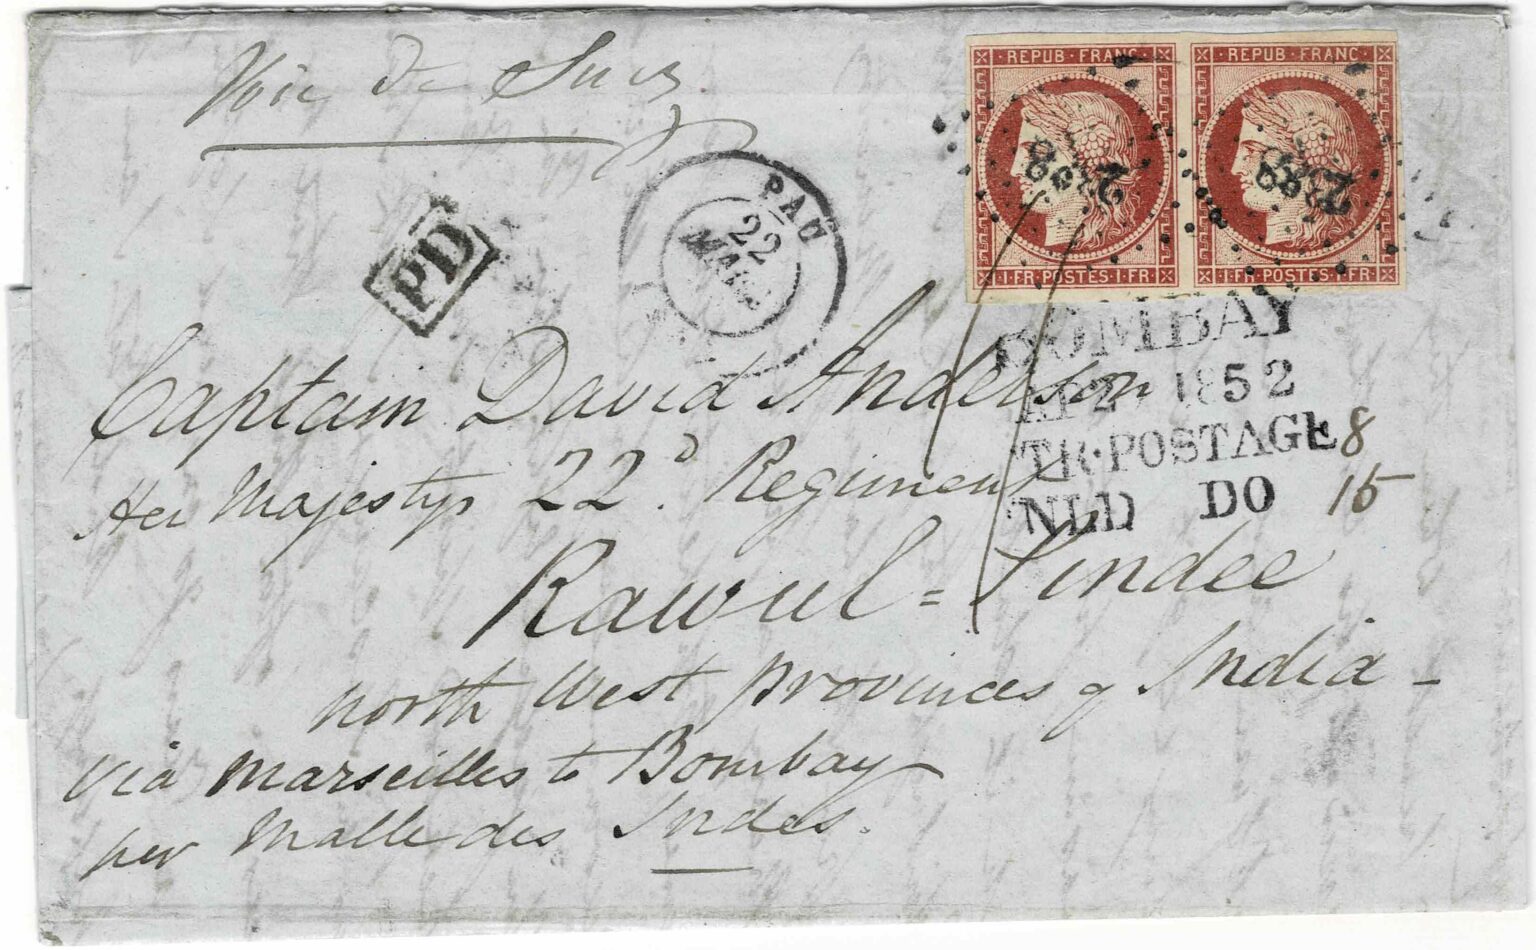 Voie de Suez
REPUB · FRANC ·
REPUB · FRANC ·
1 · FR · POSTES · 1 · FR ·
1 · FR · POSTES · 1 · FR ·
PD
PAU
22
MARS
BOMBAY
AP 2 1852
TR · POSTAGE 8
INLD DO 15
Captain David Anderson
Her Majestys 22d. Regiment
Rawul = Pindee
North West provinces of India -
Via Marseilles to Bombay
per Malle des Indes.